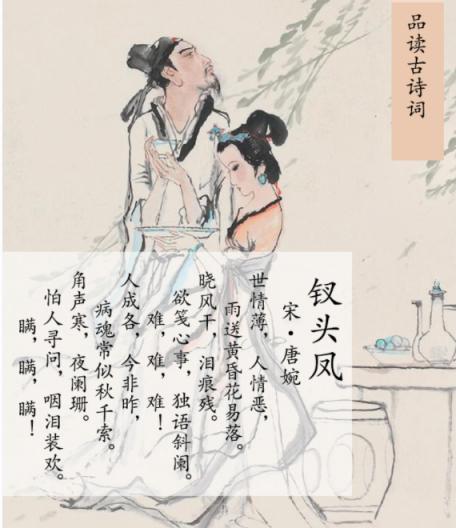 品读古诗词
钗头凤
宋·唐婉
世情薄，人情恶，
雨送黄昏花易落。
晓风干，泪痕残。
欲笺心事，独语斜阑。
难，难，难！
人成各，今非昨，
病魂常似秋千索。
角声寒，夜阑珊。
怕人寻问，咽泪装欢。
瞒，瞒，瞒！